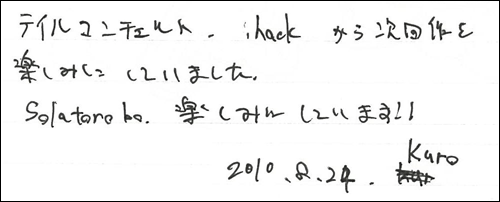 テイルコンチェルト. .hack から次回作を
楽しみにしていました.
Solatorobo. 楽しみにしています!!
Kuro
2010.8.24.